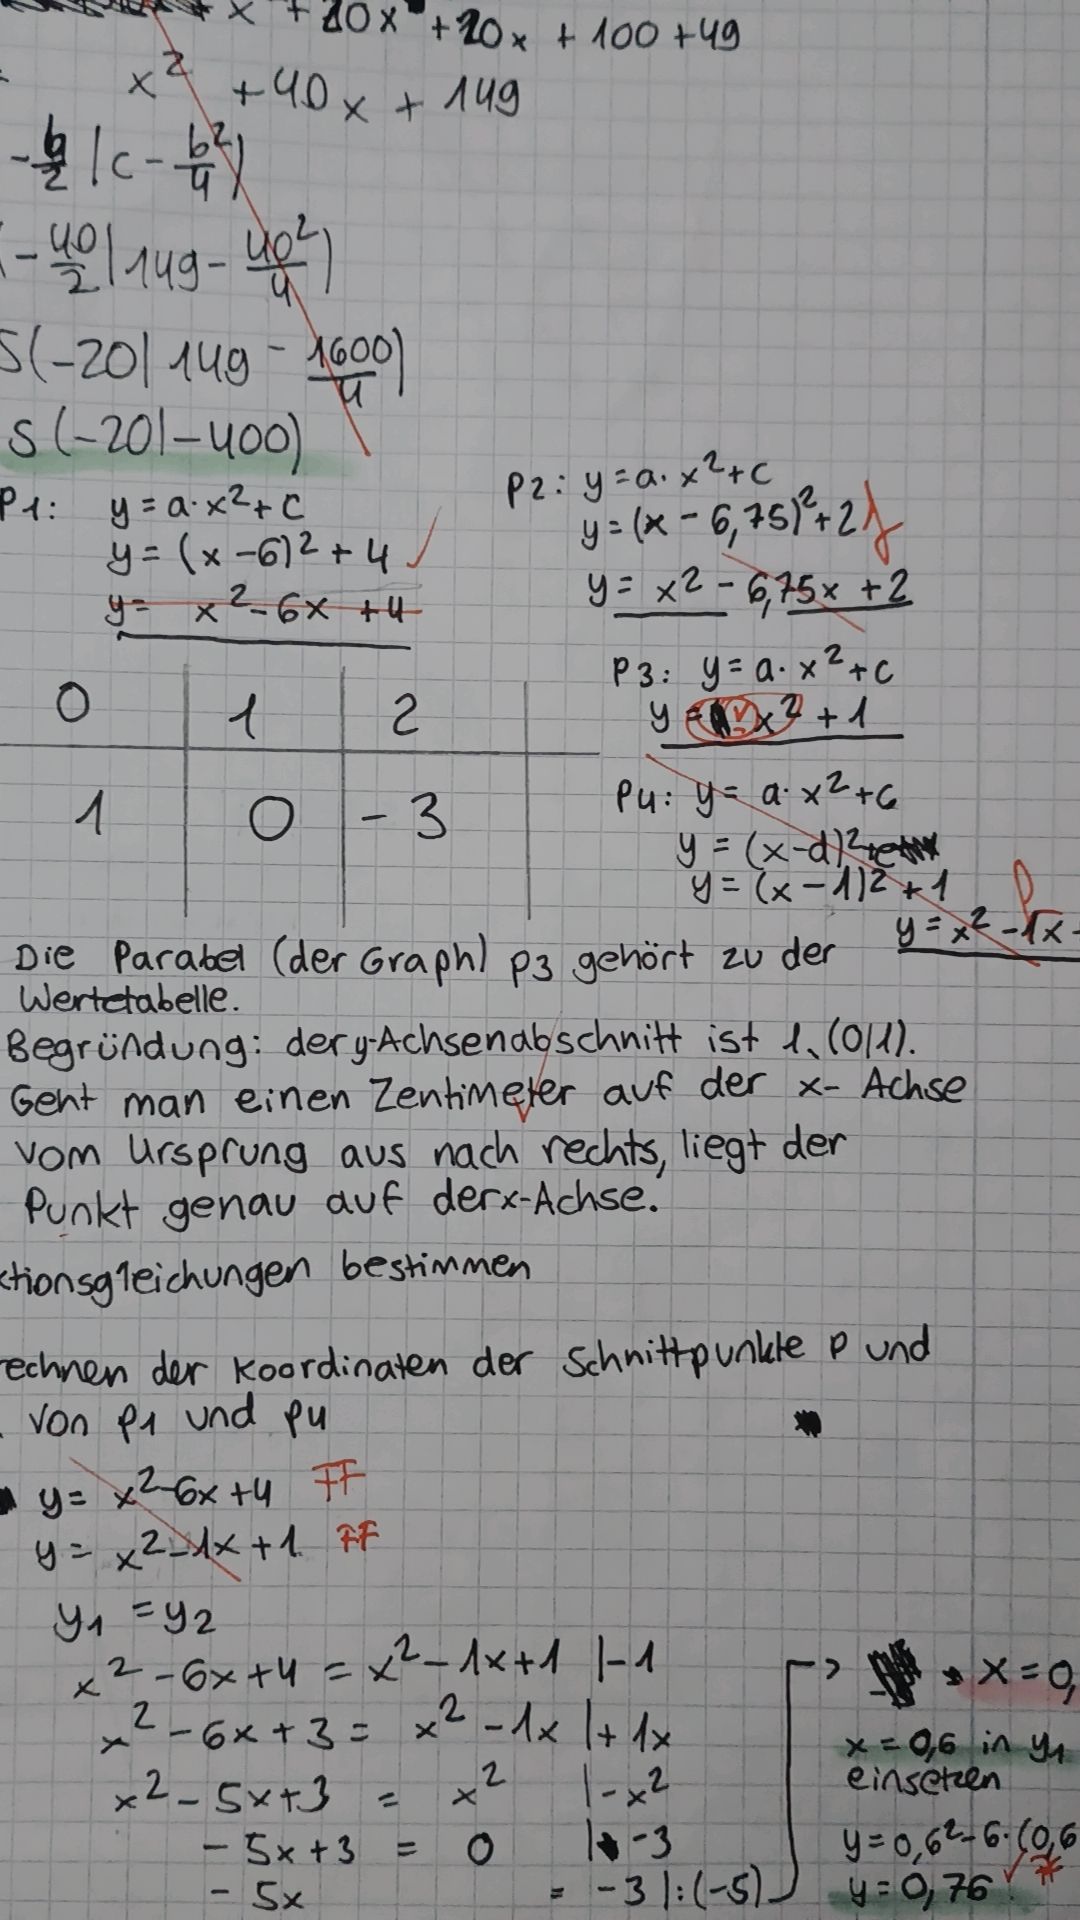 x + 20x + 20x + 100 + 49
x² + 40x + 149
-b/2 | c - b²/4)
(-40/2 | 149 - 40²/4)
S(-20 | 149 - 1600/4)
S(-20 | -400)
P1: y = a · x² + c
y = (x - 6)² + 4 ✓
y = x² - 6x + 4
P2: y = a · x² + c
y = (x - 6,75)² + 2 f
y = x² - 6,75x + 2
P3: y = a · x² + c
y = x² + 1
P4: y = a · x² + c
y = (x - d)² + e
y = (x - 1)² + 1
y = x² - 1x -
0 1 2
1 0 -3
Die Parabel (der Graph) p3 gehört zu der
Wertetabelle.
Begründung: der y-Achsenabschnitt ist 1. (0|1).
Geht man einen Zentimeter auf der x-Achse
vom Ursprung aus nach rechts, liegt der
Punkt genau auf der x-Achse.
ktionsgleichungen bestimmen
rechnen der Koordinaten der Schnittpunkte P und
von p1 und p4
y = x² - 6x + 4 FF
y = x² - 1x + 1 FF
y₁ = y₂
x² - 6x + 4 = x² - 1x + 1 | -1
x² - 6x + 3 = x² - 1x | + 1x
x² - 5x + 3 = x² | - x²
- 5x + 3 = 0 | -3
- 5x = -3 | : (-5)
x = 0,
x = 0,6 in y₁
einsetzen
y = 0,6² - 6 · (0,6
y = 0,76 ✓ *